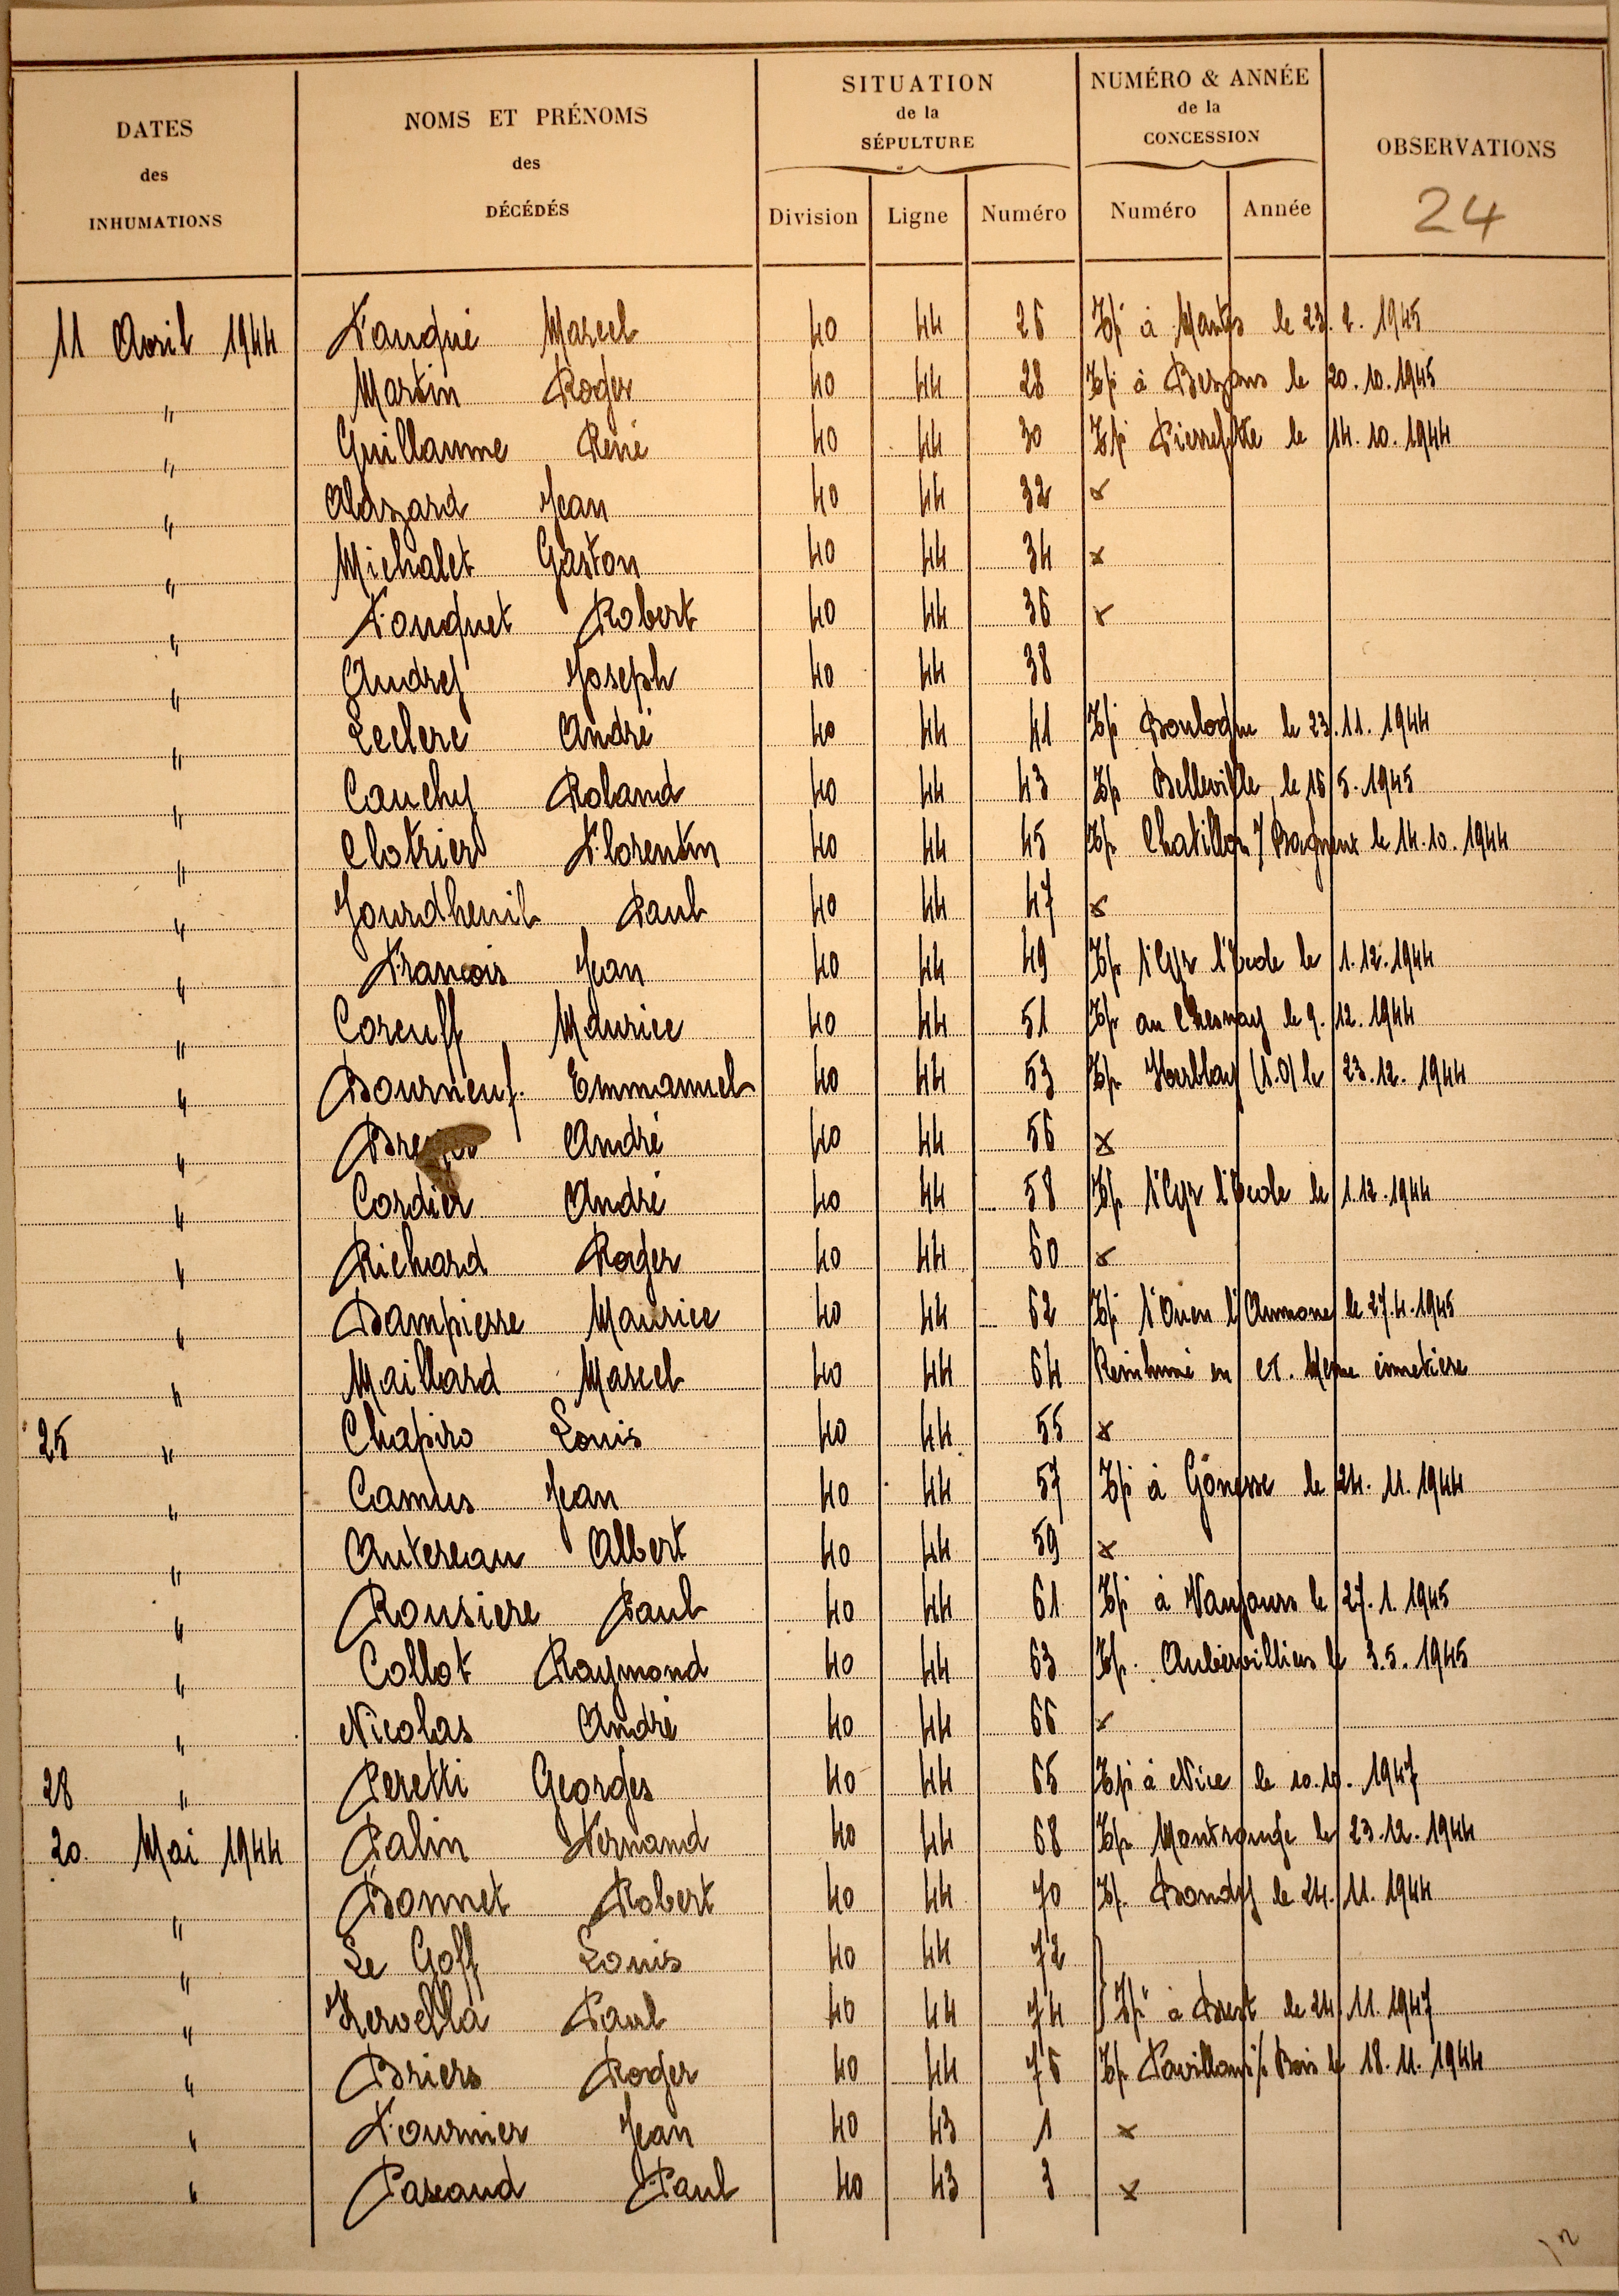 DATES
des
INHUMATIONS
NOMS ET PRÉNOMS
des
DÉCÉDÉS
SITUATION
de la
SÉPULTURE
Division Ligne Numéro
NUMÉRO & ANNÉE
de la
CONCESSION
Numéro Année
OBSERVATIONS
24
11 Avril 1944 Fauqué Marcel 40 44 26 Tp à Mantes le 23.2.1945
" Martin Roger 40 44 28 Tp à Bezons le 20.10.1945
" Guillaume René 40 44 30 Tp Pierrefitte le 14.10.1944
" Alazard Jean 40 44 32 x
" Michalet Gaston 40 44 34 x
" Fouquet Robert 40 44 36 x
" Audrey Joseph 40 44 38
" Leclerc André 40 44 41 Tp Boulogne le 23.11.1944
" Cauchy Roland 40 44 43 Tp Belleville le 16 5.1945
" Clotrier Florentin 40 44 45 Tp Chatillon / Bagneux le 14.10.1944
" Jourdheuil Paul 40 44 47 x
" Francois Jean 40 44 49 Tp St Cyr l'Ecole le 1.12.1944
" Corcuff Maurice 40 44 51 Tp au Chesnay le 9.12.1944
" Bourneuf Emmanuel 40 44 53 Tp Herblay (S.O) le 23.12.1944
" André 40 44 56 x
" Cordier André 40 44 58 Tp St Cyr l'Ecole le 1.12.1944
" Richard Roger 40 44 60 x
" Dampierre Maurice 40 44 62 Tp St Ouen l'Aumone le 27.4.1945
" Maillard Marcel 40 44 64 Réinhumé en ct. Meme cimetière
25 " Chapiro Louis 40 44 55 x
" Camus Jean 40 44 57 Tp à Gonesse le 24.11.1944
" Autereau Albert 40 44 59 x
" Rousiere Paul 40 44 61 Tp à Vaujours le 27.1.1945
" Collot Raymond 40 44 63 Tp. Aubervilliers le 3.5.1945
" Nicolas André 40 44 66 x
28 " Peretti Georges 40 44 65 Tp à Nice le 10.10.1947
20 Mai 1944 Palin Fernand 40 44 68 Tp Montrouge le 23.12.1944
" Bonnet Robert 40 44 70 Tp. Bondy le 24.11.1944
" Le Goff Louis 40 44 72
" Kervella Paul 40 44 74 } Tp à Brest le 24.11.1947
" Briers Roger 40 44 76 Tp Pavillons s/s Bois le 18.11.1944
" Fournier Jean 40 43 1 x
" Pascaud Paul 40 43 3 x